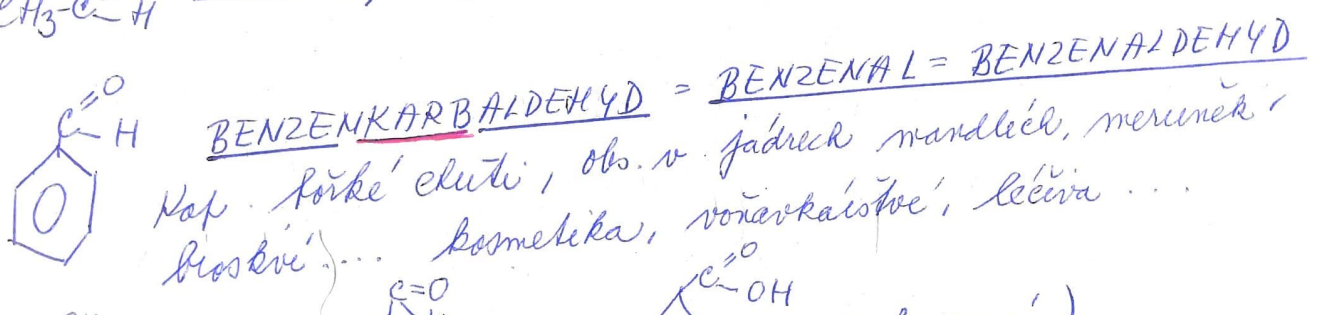 CH3-C-H
C=O
H
BENZENKARBALDEHYD = BENZENAL = BENZENALDEHYD
Kap. hořké chuti, obs. v jádrech mandlích, meruněk,
broskví... kosmetika, voňavkářství, léčiva ...
C=O
C=O
OH